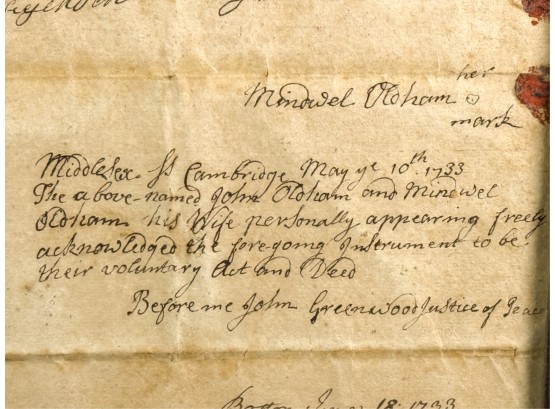 her
Mindwel Oldham
mark
Middlesex Ss Cambridge May ye 10th. 1733
The above-named John Oldham and Mindwel
Oldham his Wife personally appearing freely
acknowledged the foregoing Instrument to be
their voluntary Act and Deed
Before me John Greenwood Justice of Peace
18. 1733